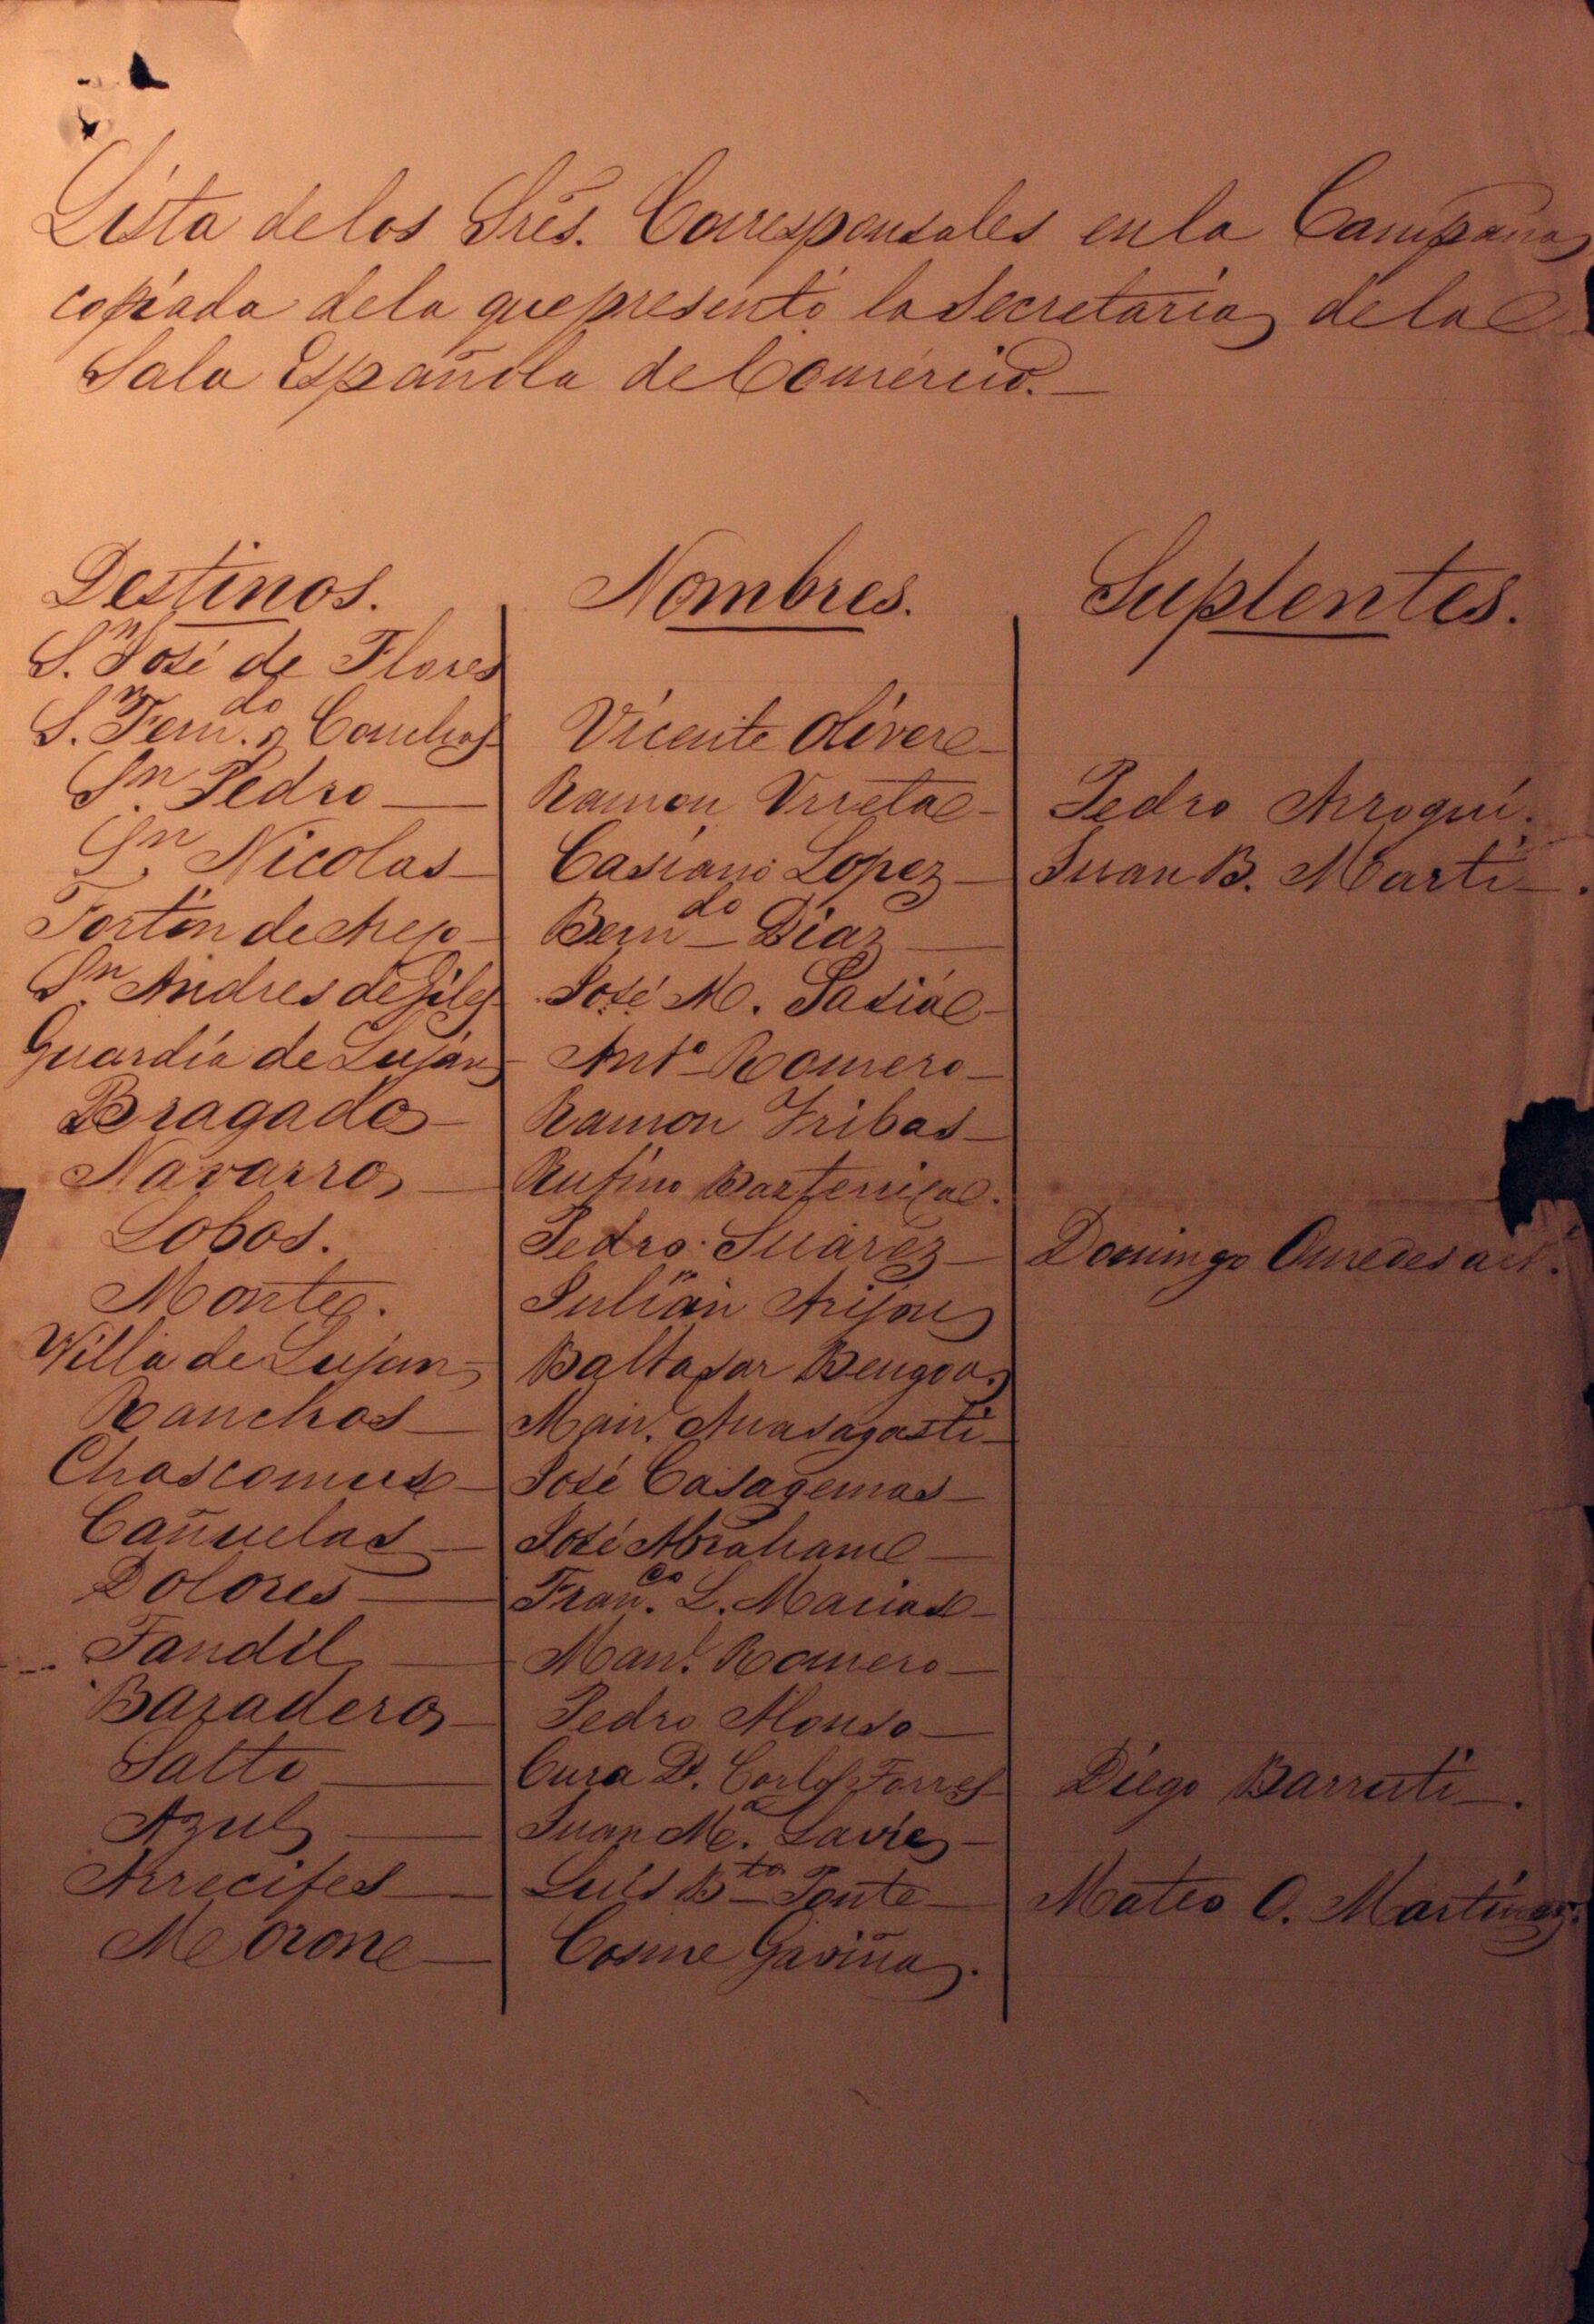 Lista de los Sres. Corresponsales en la Campaña
copiada de la que presentó la Secretaria de la
Sala Española de Comercio.
Destinos. Nombres. Suplentes.
S.n José de Flores
S.n Fern.do y Conchas Vicente Olivere
S.n Pedro Ramon Urieta Pedro Arregui.
S.n Nicolas Casiano Lopez Juan B. Marti.
Fortin de Areco Bern.do Diaz
S.n Andres de Giles José M. Sasia
Guardia de Lujan Ant.o Romero
Bragado Ramon Tribas
Navarro Rufino
Lobos. Pedro Suárez Domingo
Monte. Julián Arijon
Villa de Lujan Baltasar Bengoa.
Ranchos Man. Anasagasti
Chascomus José Casagemas
Cañuelas José Abraham
Dolores Fran.co L. Macias
Tandil Man.l Romero
Baradero Pedro Alonso
Salto Cura D. Carlos Torres Diego Barruti.
Azul Juan M.a Lavie
Arrecifes Luis B.ta Ponte Mateo O. Martinez.
Moron Cosme Gaviña.